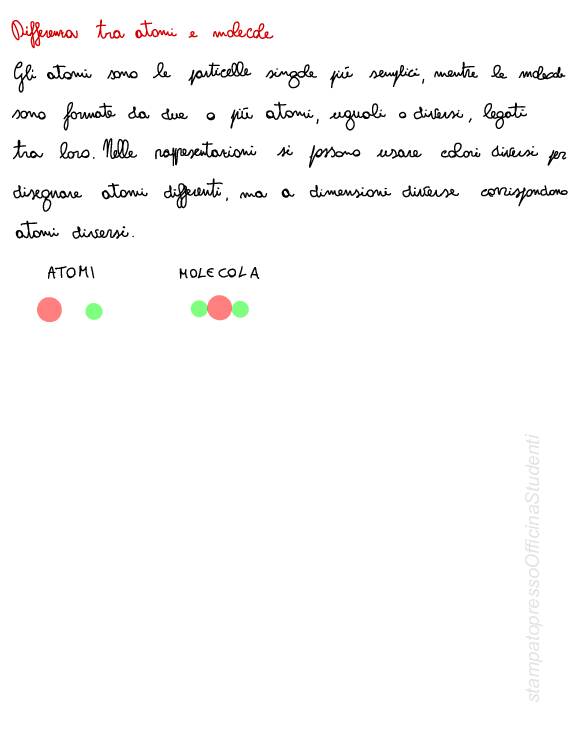 Differenza tra atomi e molecole
Gli atomi sono le particelle singole più semplici, mentre le molecole
sono formate da due o più atomi, uguali o diversi, legati
tra loro. Nelle rappresentazioni si possono usare colori diversi per
disegnare atomi differenti, ma a dimensioni diverse corrispondono
atomi diversi.
ATOMI MOLECOLA
stampatopressoOfficinaStudenti